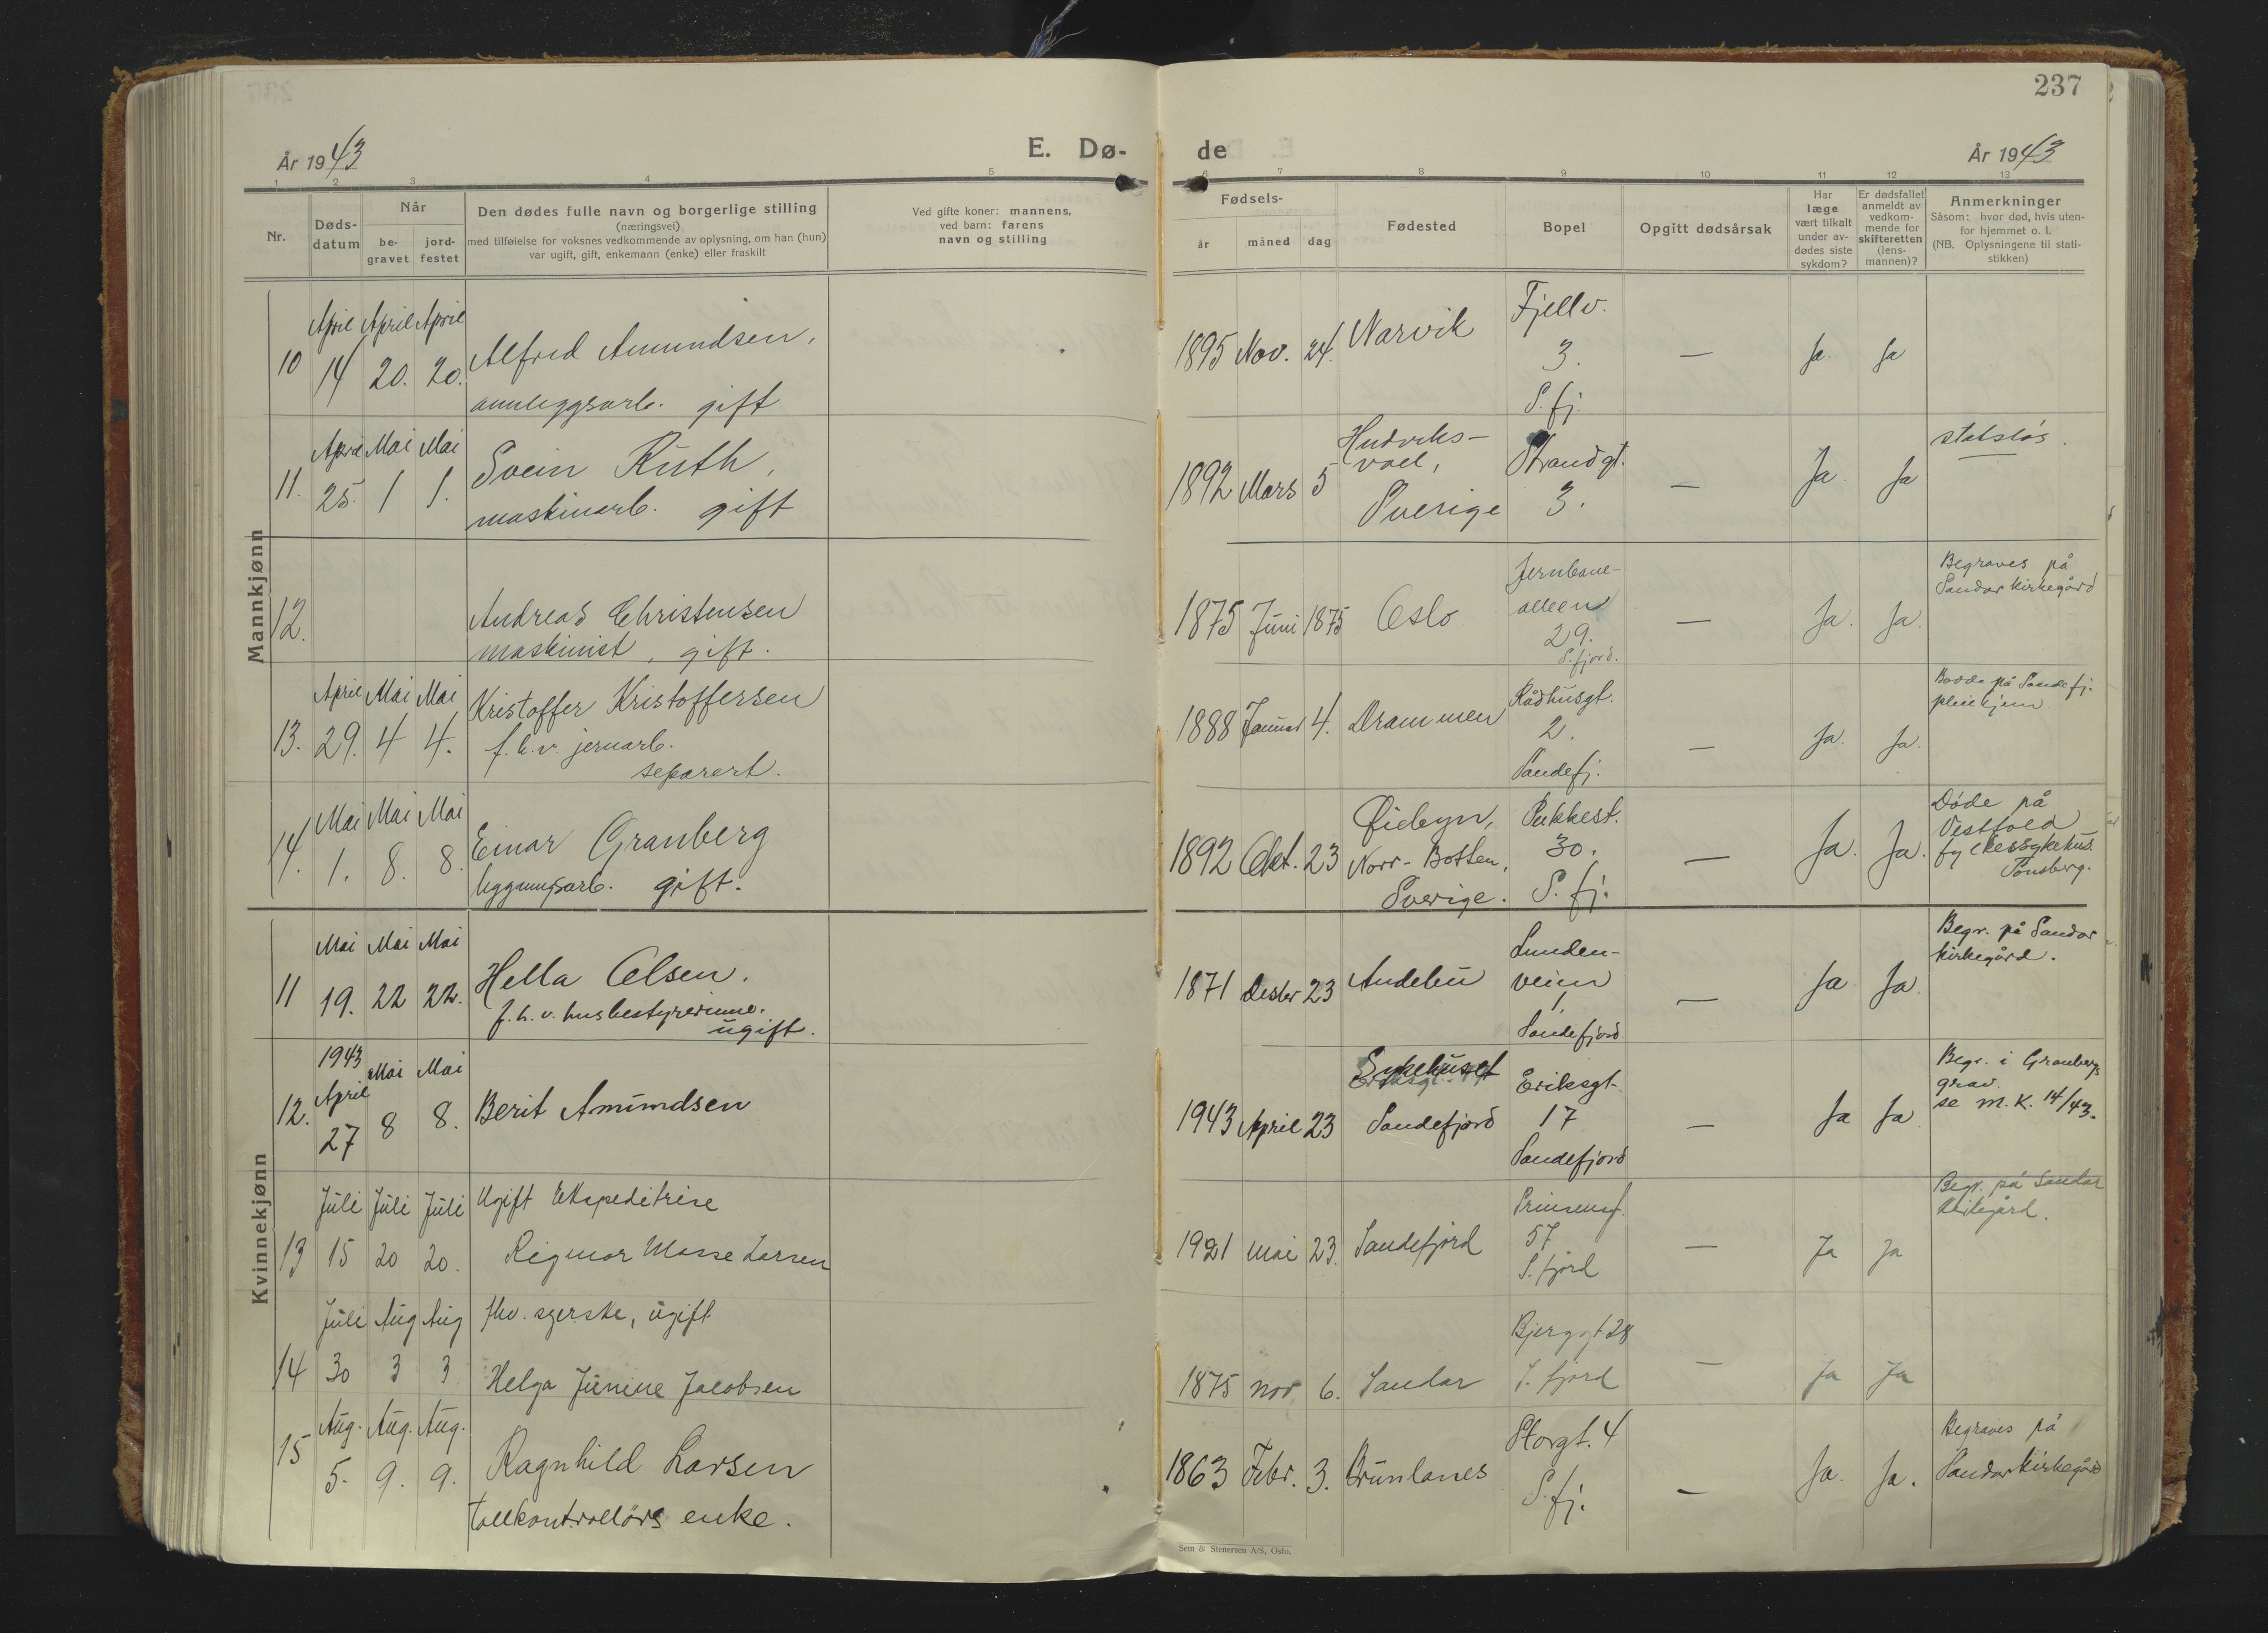 237
År 1943
E. Dø-
de
År 1943
1 2 3 4 5 6 7 8 9 10 11 12 13
Nr.
Døds-
datum
Når
be-
gravet
jord-
festet
Den dødes fulle navn og borgerlige stilling
(næringsvei)
med tilføielse for voksnes vedkommende av oplysning, om han (hun)
var ugift, gift, enkemann (enke) eller fraskilt
Ved gifte koner: mannens,
ved barn: farens
navn og stilling
Fødsels-
år måned dag
Fødested
Bopel
Opgitt dødsårsak
Har
læge
vært tilkalt
under av-
dødes siste
sykdom?
Er dødsfallet
anmeldt av
vedkom-
mende for
skifteretten
(lens-
mannen)?
Anmerkninger
Såsom: hvor død, hvis uten-
for hjemmet o. l.
(NB. Oplysningene til stati-
stikken)
Mannkjønn
10 April 14 April 20. April 20.
Alfred Amundsen,
anleggsarb. gift
1895 Nov. 24. Narvik
Fjellv.
3.
S.fj.
— Ja Ja
11. April 25. Mai 1 Mai 1.
Svein Ruth,
maskinarb. gift
1892 Mars 5
Hudviks-
vall,
Sverige
Strandgt.
3.
— Ja Ja
statsløs.
12.
Andreas Christensen
maskinist, gift.
1875 Juni 1875 Oslo
Jernbane-
alleen
29.
S.fjord.
— Ja. Ja.
Begraves på
Sandar kirkegård
13. April 29. Mai 4 Mai 4.
Kristoffer Kristoffersen
f.h.v. jernarb.
separert.
1888 Januar 4. Drammen
Rådhusgt.
2.
Sandefj.
— Ja. Ja.
Bodde på Sandefj.
pleiehjem
14. Mai 1. Mai 8. Mai 8.
Einar Granberg
byggningsarb. gift.
1892 Okt. 23
Öiebyn,
Norr-Botten,
Sverige.
Pukkest.
30.
S.fj.
— Ja. Ja.
Døde på
Vestfold
fylkessykehus.
Tønsberg.
Kvinnekjønn
11 Mai 19. Mai 22 Mai 22.
Hella Olsen.
f.h.v. husbestyrerinne.
ugift.
1871 Desbr 23 Andebu
Lunden-
veien
1
Sandefjord
— Ja Ja
Begr. på Sandar
kirkegård.
12. 1943 April 27 Mai 8 Mai 8.
Berit Amundsen
1943 April 23
Sykehuset
Sandefjord
Eriksgt.
17
Sandefjord
— Ja Ja
Begr. i Granbergs
grav.
se M.K. 14/43.
13 Juli 15 Juli 20 Juli 20.
Ugift Ekspeditrise
Rigmor Mosse Larsen
1921 mai 23. Sandefjord
Prinsensg.
57
S.fjord
— Ja Ja
Begr. på Sandar
kirkegård.
14 Juli 30 Aug 3 Aug 3
fhv. syerske, ugift
Helga Junine Jacobsen
1875 nov 6. Sandar
Bjerggt 28
S.fjord
— Ja Ja
15 Aug. 5. Aug. 9. Aug. 9.
Ragnhild Larsen
tollkontrollørs enke.
1863 Febr. 3. Brunlanes
Storgt. 4
S.fj.
— Ja. Ja.
Begraves på
Sandar kirkegård
Sem & Stenersen A/S, Oslo.